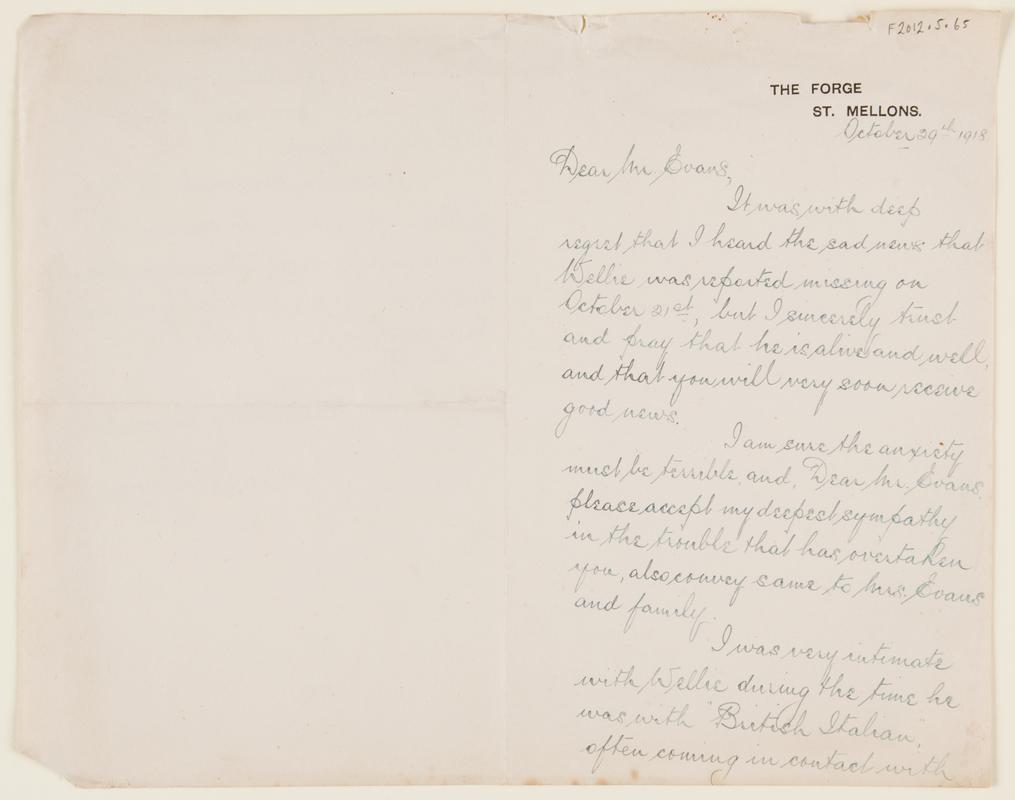 F2012.5.65
THE FORGE
ST. MELLONS.
October 29th 1918
Dear Mr. Evans,
It was with deep
regret that I heard the sad news that
Wellie was reported missing on
October 21st, but I sincerely trust
and pray that he is alive and well,
and that you will very soon receive
good news.
I am sure the anxiety
must be terrible, and, Dear Mr. Evans,
please accept my deepest sympathy
in the trouble that has overtaken
you, also convey same to Mrs. Evans
and family.
I was very intimate
with Wellie during the time he
was with "British Italian",
often coming in contact with